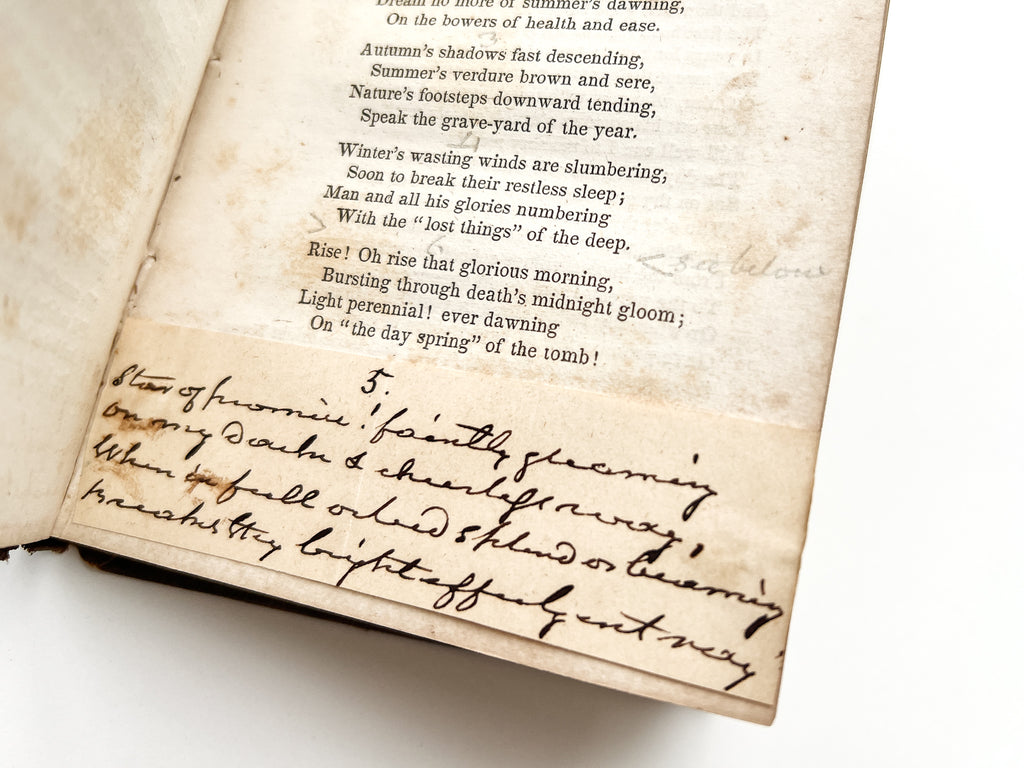 Dream no more of summer's dawning,
On the bowers of health and ease.
3
Autumn's shadows fast descending,
Summer's verdure brown and sere,
Nature's footsteps downward tending,
Speak the grave-yard of the year.
4
Winter's wasting winds are slumbering,
Soon to break their restless sleep;
Man and all his glories numbering
With the "lost things" of the deep.
> < see below
6
Rise! Oh rise that glorious morning,
Bursting through death's midnight gloom;
Light perennial! ever dawning
On "the day spring" of the tomb!
5.
Star of promise! faintly gleaming
on my Dark & cheerless way;
When in full orbed splendor beaming
Breaks thy bright effulgent ray